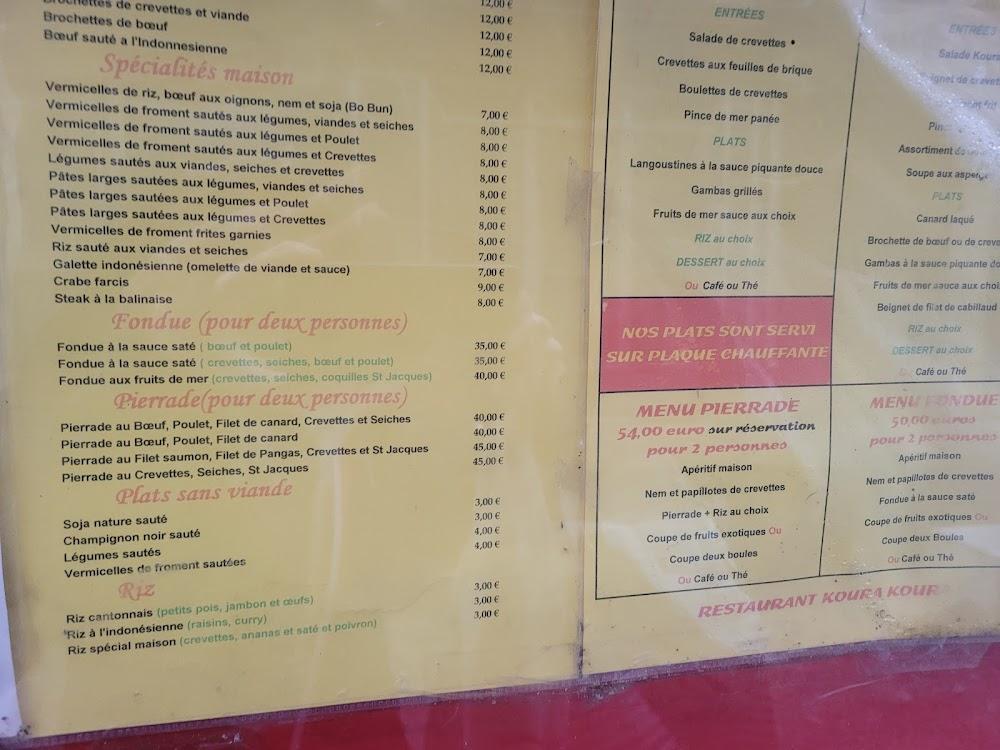 Brochettes de crevettes et viande 12,00 €
Brochettes de bœuf 12,00 €
Bœuf sauté a l'Indonnesienne 12,00 €
12,00 €
12,00 €
Spécialités maison
Vermicelles de riz, bœuf aux oignons, nem et soja (Bo Bun) 7,00 €
Vermicelles de froment sautés aux légumes, viandes et seiches 8,00 €
Vermicelles de froment sautés aux légumes et Poulet 8,00 €
Vermicelles de froment sautés aux légumes et Crevettes 8,00 €
Légumes sautés aux viandes, seiches et crevettes 8,00 €
Pâtes larges sautées aux légumes, viandes et seiches 8,00 €
Pâtes larges sautées aux légumes et Poulet 8,00 €
Pâtes larges sautées aux légumes et Crevettes 8,00 €
Vermicelles de froment frites garnies 8,00 €
Riz sauté aux viandes et seiches 7,00 €
Galette indonésienne (omelette de viande et sauce) 7,00 €
Crabe farcis 9,00 €
Steak à la balinaise 8,00 €
Fondue (pour deux personnes)
Fondue à la sauce saté ( bœuf et poulet) 35,00 €
Fondue à la sauce saté ( crevettes, seiches, bœuf et poulet) 35,00 €
Fondue aux fruits de mer (crevettes, seiches, coquilles St Jacques) 40,00 €
Pierrade(pour deux personnes)
Pierrade au Bœuf, Poulet, Filet de canard, Crevettes et Seiches 40,00 €
Pierrade au Bœuf, Poulet, Filet de canard 40,00 €
Pierrade au Filet saumon, Filet de Pangas, Crevettes et St Jacques 45,00 €
Pierrade au Crevettes, Seiches, St Jacques 45,00 €
Plats sans viande
Soja nature sauté 3,00 €
Champignon noir sauté 3,00 €
Légumes sautés 4,00 €
Vermicelles de froment sautées 4,00 €
Riz
Riz cantonnais (petits pois, jambon et œufs) 3,00 €
Riz à l'indonésienne (raisins, curry) 3,00 €
Riz spécial maison (crevettes, ananas et saté et poivron) 3,00 €
ENTRÉES
Salade de crevettes •
Crevettes aux feuilles de brique
Boulettes de crevettes
Pince de mer panée
PLATS
Langoustines à la sauce piquante douce
Gambas grillés
Fruits de mer sauce aux choix
RIZ au choix
DESSERT au choix
Ou Café ou Thé
NOS PLATS SONT SERVI
SUR PLAQUE CHAUFFANTE
MENU PIERRADE
54,00 euro sur réservation
pour 2 personnes
Apéritif maison
Nem et papillotes de crevettes
Pierrade + Riz au choix
Coupe de fruits exotiques Ou
Coupe deux boules
Ou Café ou Thé
ENTRÉES
Salade Koura
de
Assortiment
Soupe aux
PLATS
Canard laqué
Brochette de bœuf ou de
Gambas à la sauce piquante
Fruits de mer sauce aux choix
Beignet de filet de cabillaud
RIZ au choix
DESSERT au choix
Café ou Thé
MENU FONDUE
50,00 euros
pour 2 personnes
Apéritif maison
Nem et papillotes de crevettes
Fondue à la sauce saté
Coupe de fruits exotiques Ou
Coupe deux Boules
Ou Café ou Thé
RESTAURANT KOURA KOURA